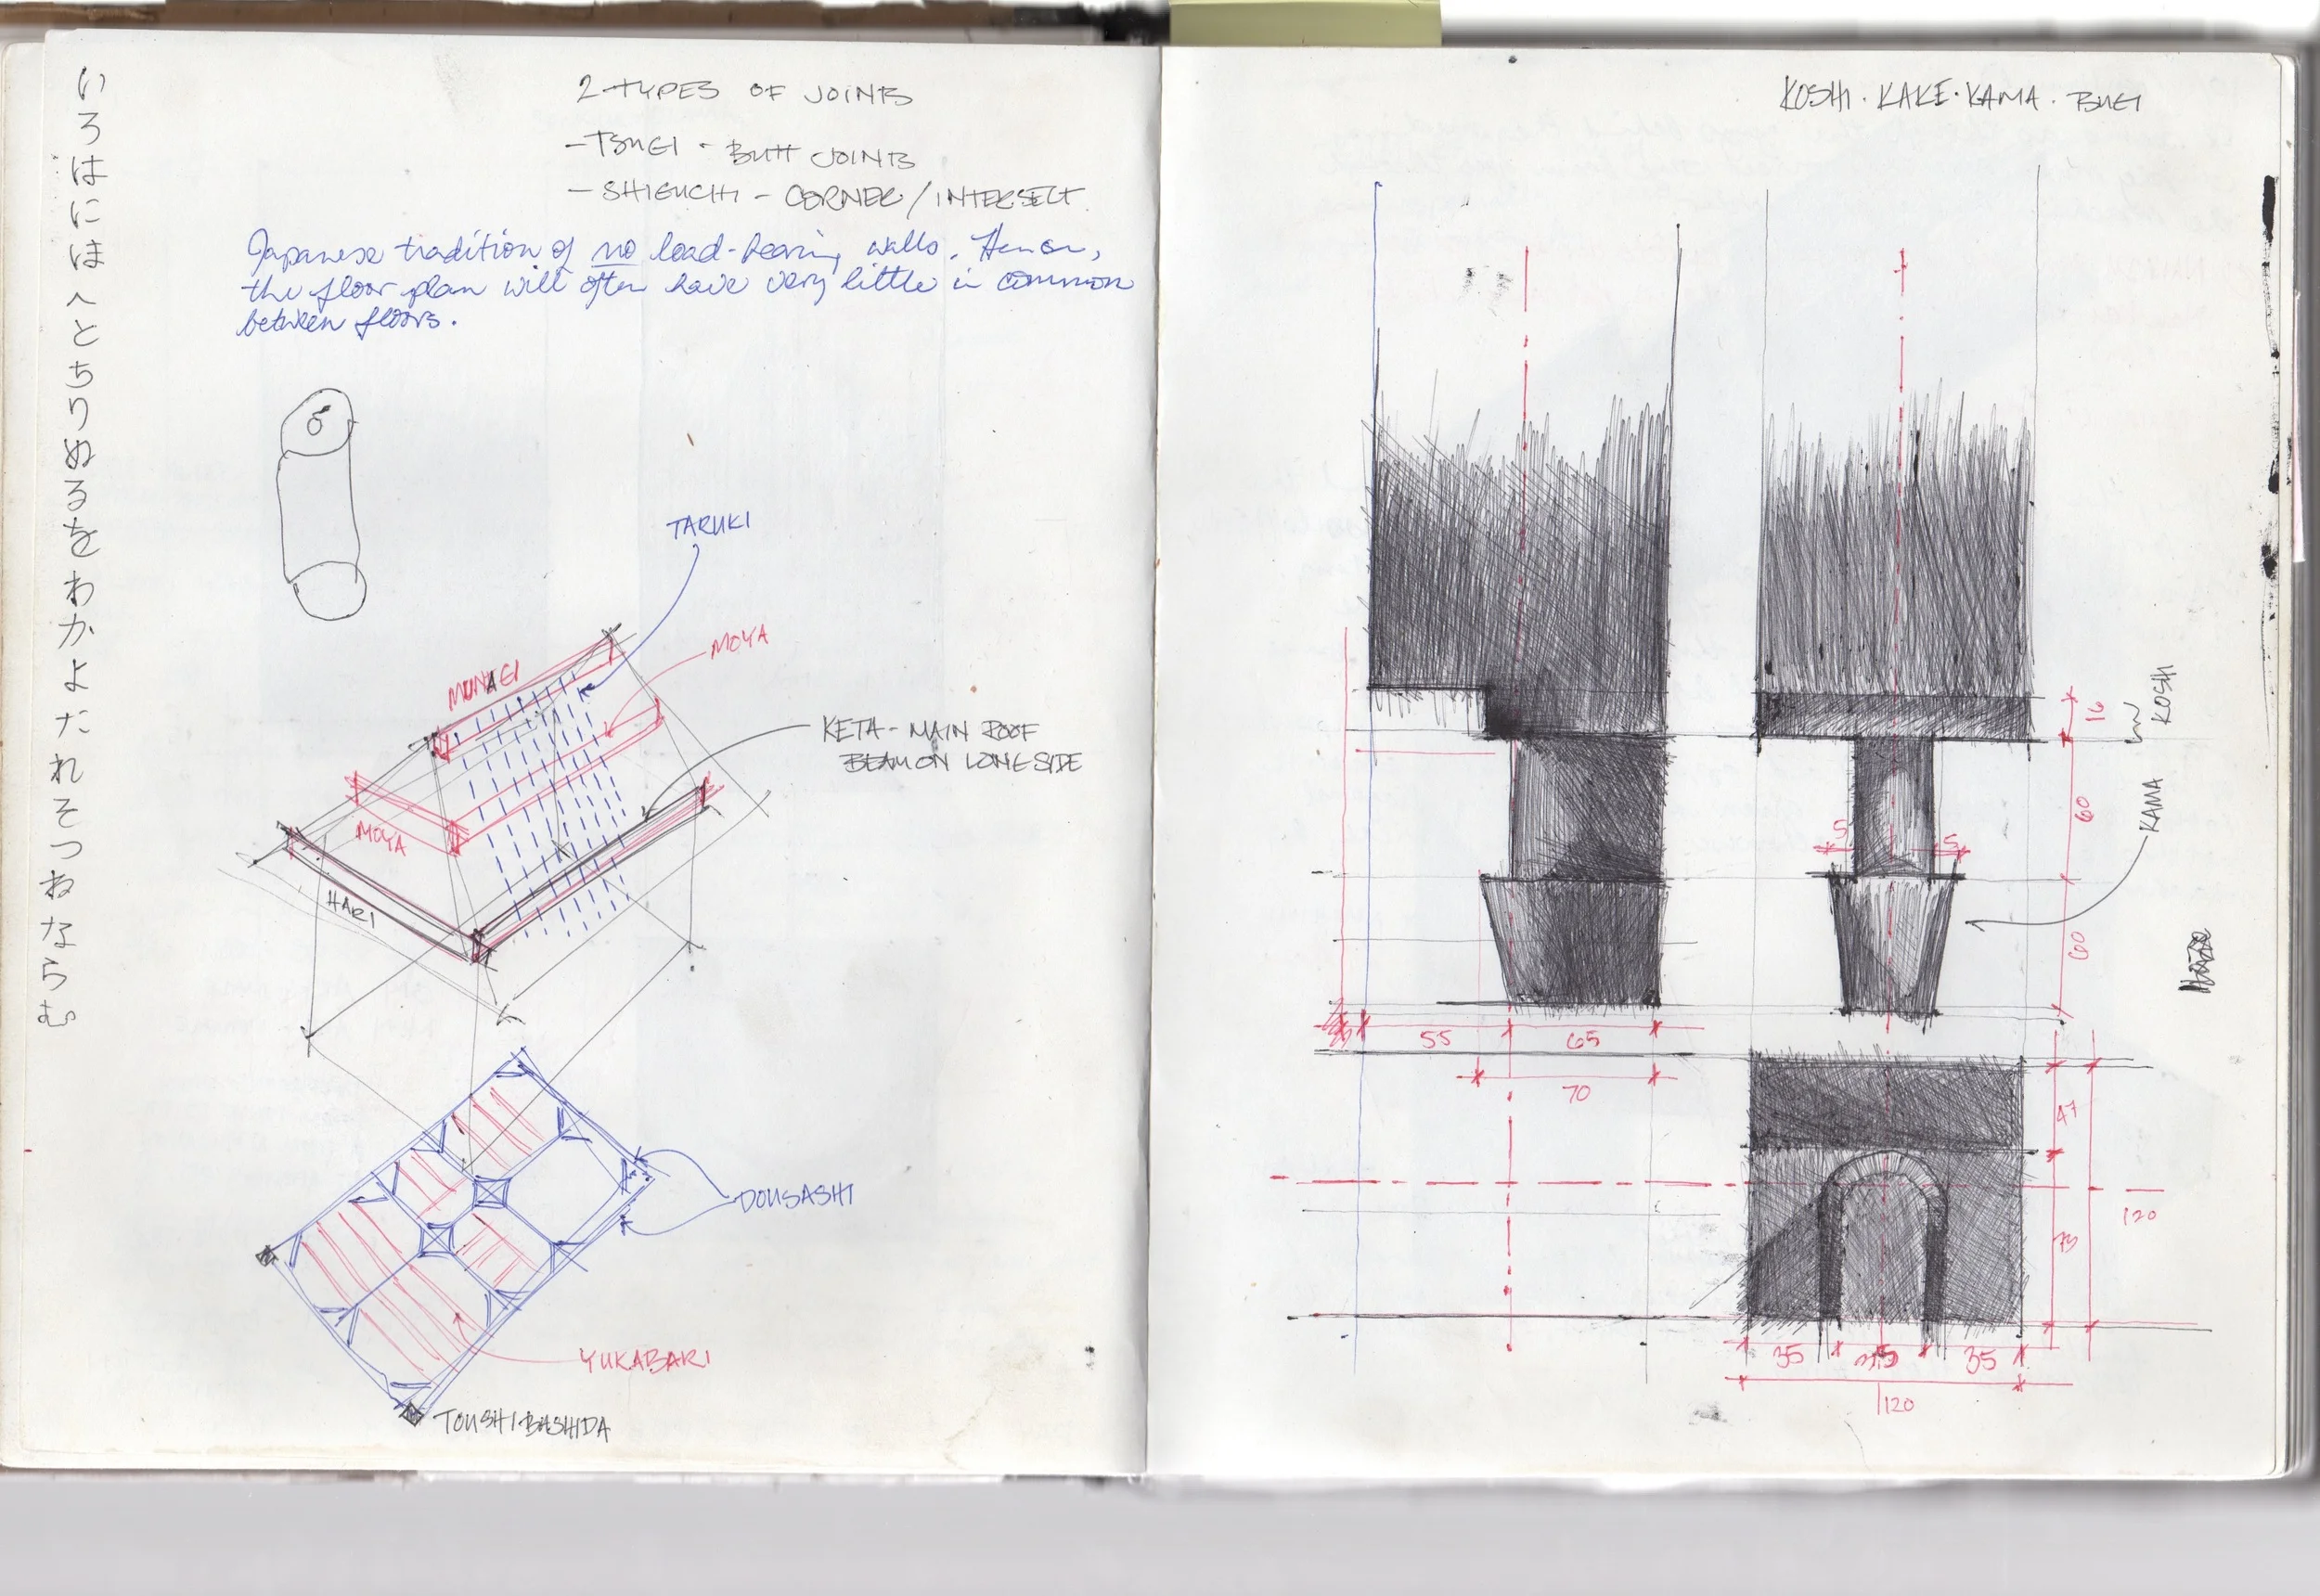 いろはにほへとちりぬるをわかよたれそつねならむ
2 TYPES OF JOINTS
- TSUGI - BUTT JOINTS
- SHIGUCHI - CORNER / INTERSECT.
Japanese tradition of no load-bearing walls. Hence,
the floor plan will often have very little in common
between floors.
TARUKI
MUNAGI
MOYA
KETA - MAIN ROOF
BEAM ON LONG SIDE
MOYA
HARI
DOUSASHI
YUKABARI
TOUSHI BASHIDA
KOSHI · KAKE · KAMA · TSUGI
16
KOSHI
60
KAMA
5
5
60
55
65
70
47
120
73
35
35
120